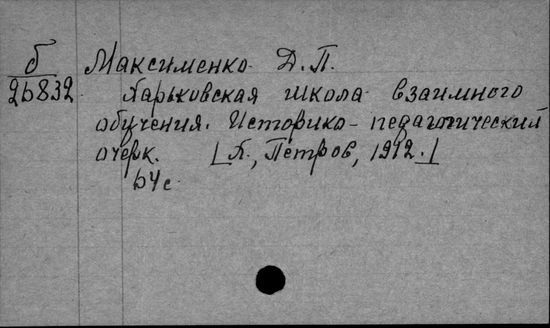 б
26832
Максименко Д. П.
Харьковская школа взаимного
обучения. Историко-педагогический
очерк. [Х., Петров, 1912.]
64 с